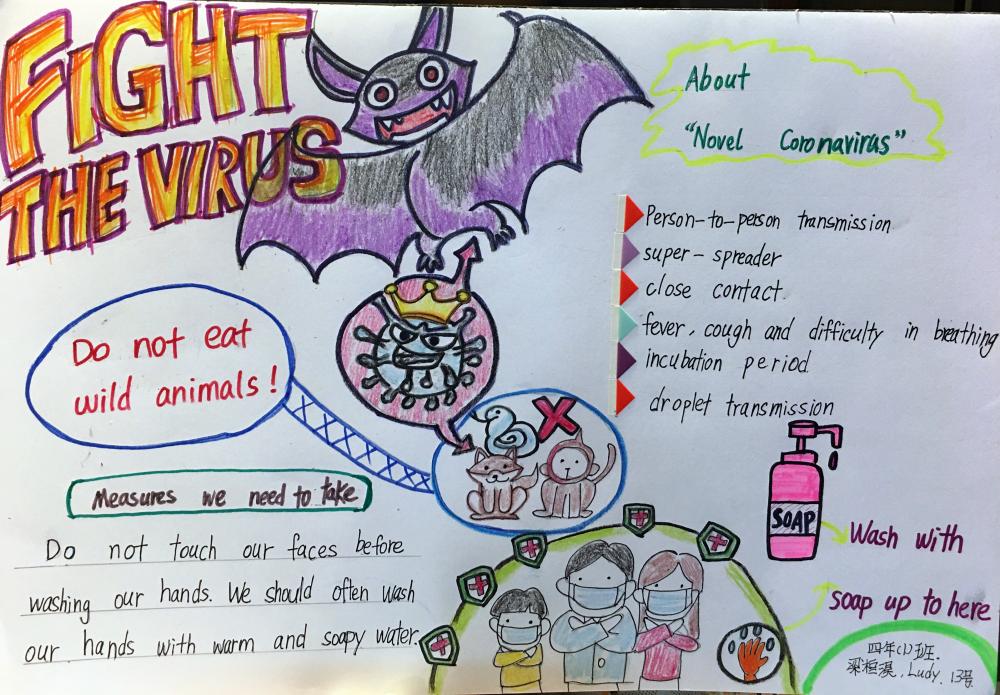 FIGHT
THE VIRUS
About
"Novel Coronavirus"
Person-to-person transmission
super-spreader
close contact
fever, cough and difficulty in breathing
incubation period
droplet transmission
Do not eat
wild animals!
Measures we need to take
Do not touch our faces before
washing our hands. We should often wash
our hands with warm and soapy water.
SOAP
Wash with
soap up to here
四年(1)班.
梁桓溪, Ludy, 13号